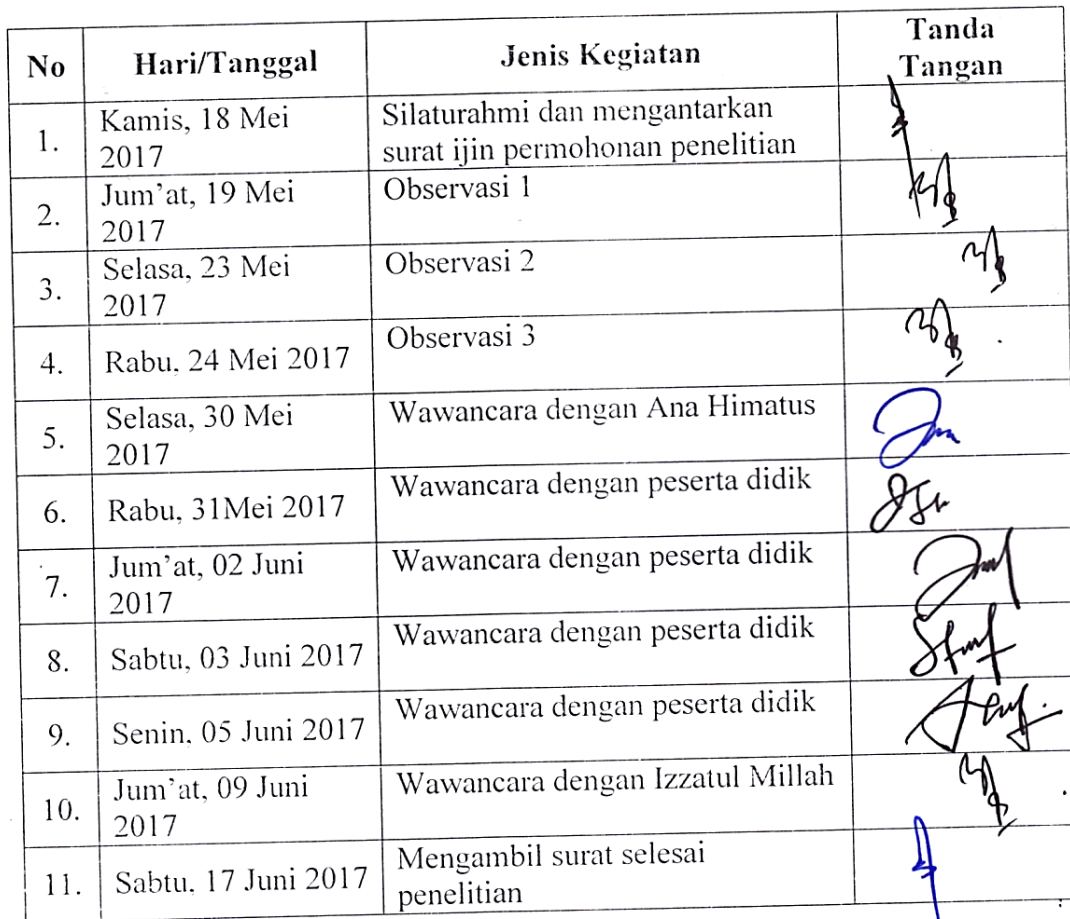 No Hari/Tanggal Jenis Kegiatan Tanda
Tangan
1. Kamis, 18 Mei Silaturahmi dan mengantarkan
2017 surat ijin permohonan penelitian
2. Jum'at, 19 Mei Observasi 1
2017
3. Selasa, 23 Mei Observasi 2
2017
4. Rabu, 24 Mei 2017 Observasi 3
5. Selasa, 30 Mei Wawancara dengan Ana Himatus
2017
6. Rabu, 31Mei 2017 Wawancara dengan peserta didik
7. Jum'at, 02 Juni Wawancara dengan peserta didik
2017
8. Sabtu, 03 Juni 2017 Wawancara dengan peserta didik
9. Senin, 05 Juni 2017 Wawancara dengan peserta didik
10. Jum'at, 09 Juni Wawancara dengan Izzatul Millah
2017
11. Sabtu, 17 Juni 2017 Mengambil surat selesai
penelitian